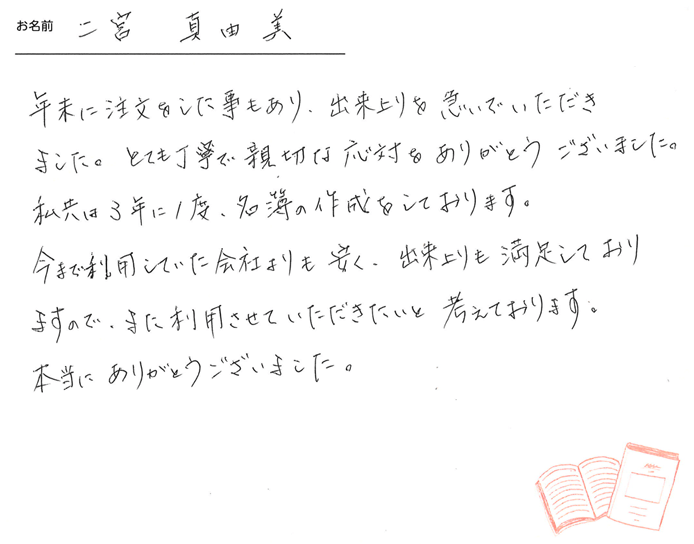 お名前 二宮 真由美
年末に注文をした事もあり、出来上りを急いでいただき
ました。とても丁寧で親切な応対をありがとうございました。
私共は3年に1度、名簿の作成をしております。
今まで利用していた会社よりも安く、出来上りも満足しており
ますので、また利用させていただきたいと考えております。
本当にありがとうございました。